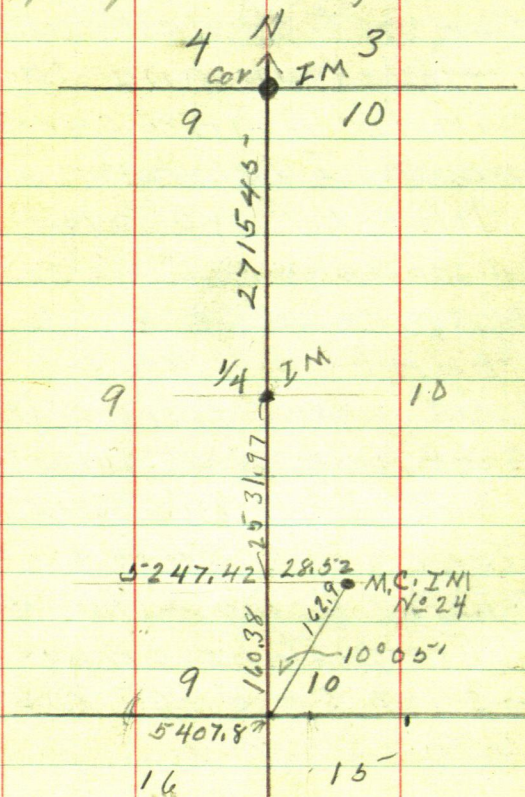 N
4 3
Cor IM
9 10
271545
1/4 IM
9 10
2531.97
5247.42 28.52 M.C. IM
No 24
162.9
160.38
10°05'
9 10
5407.8
16 15